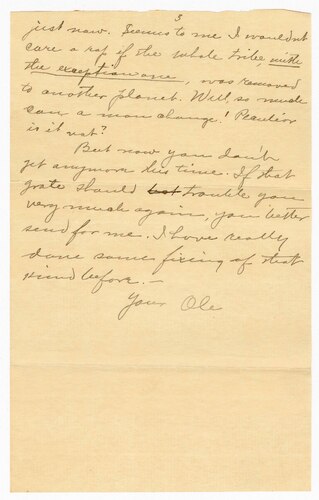 3
just now. Seems to me I wouldn't
care a rap if the whole tribe, with
the exception one, was removed
to another planet. Well, so much
can a man change! Peculiar
is it not?
But now you don't
get anymore this time. If that
grate should last trouble you
very much again, you better
send for me. I have really
done some fixing of that
kind before. —
Your Ole.